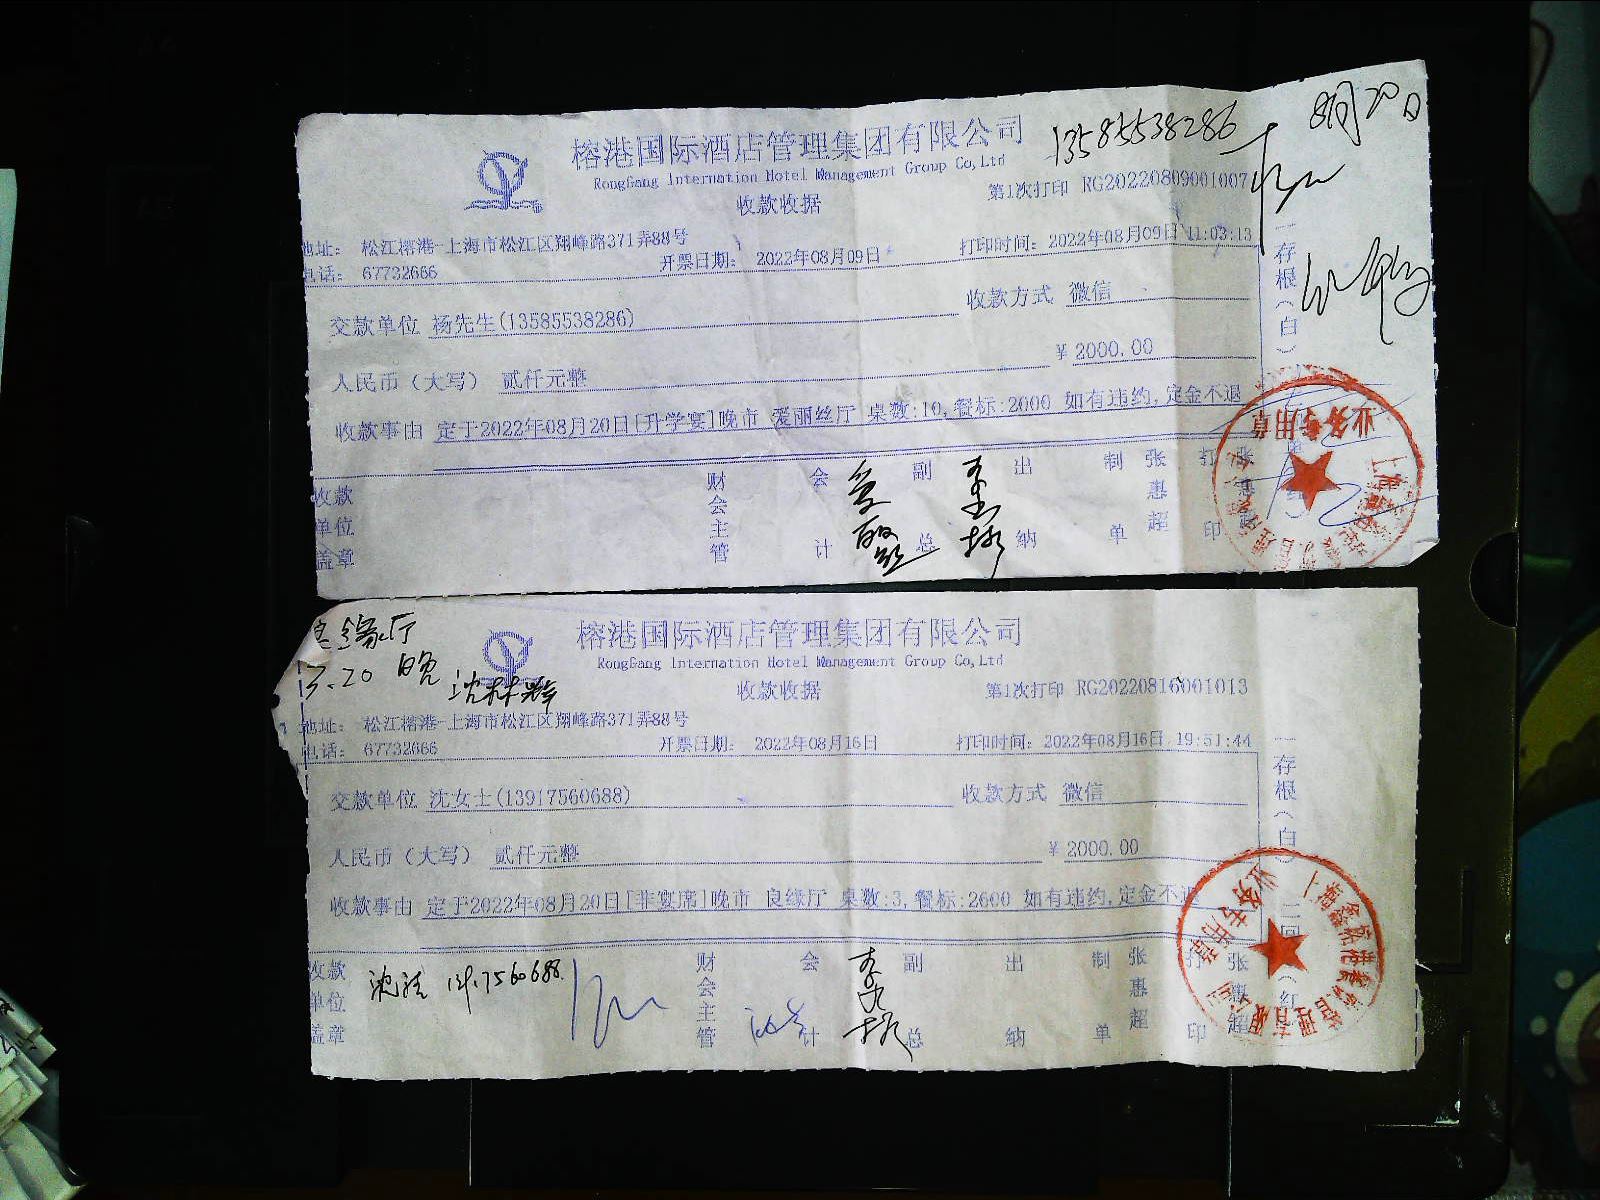 榕港国际酒店管理集团有限公司
RongGang Internation Hotel Management Group Co,Ltd
13585538286
8月20日
收款收据
第1次打印 RG20220809001007
地址: 松江榕港-上海市松江区翔峰路371弄88号
电话: 67732666
开票日期: 2022年08月09日
打印时间: 2022年08月09日 11:03:13
交款单位 杨先生(13585538286)
收款方式 微信
人民币(大写) 贰仟元整
¥ 2000.00
收款事由 定于2022年08月20日[升学宴]晚市 爱丽丝厅 桌数:10,餐标:2000 如有违约,定金不退
收款单位盖章
财会主管
会计
爱丽丝
副总
出纳
制单
张惠超
打印
张惠超
一存根(白)
业务专用章
榕港国际酒店管理集团有限公司
RongGang Internation Hotel Management Group Co,Ltd
良缘厅
20 晚
沈林辉
收款收据
第1次打印 RG20220816001013
地址: 松江榕港-上海市松江区翔峰路371弄88号
电话: 67732666
开票日期: 2022年08月16日
打印时间: 2022年08月16日 19:51:44
交款单位 沈女士(13917560688)
收款方式 微信
人民币(大写) 贰仟元整
¥ 2000.00
收款事由 定于2022年08月20日[非宴席]晚市 良缘厅 桌数:3,餐标:2600 如有违约,定金不退
收款单位盖章
财会主管
会计
副总
出纳
制单
张惠超
打印
张惠超
一存根(白)二回(红
业务专用章